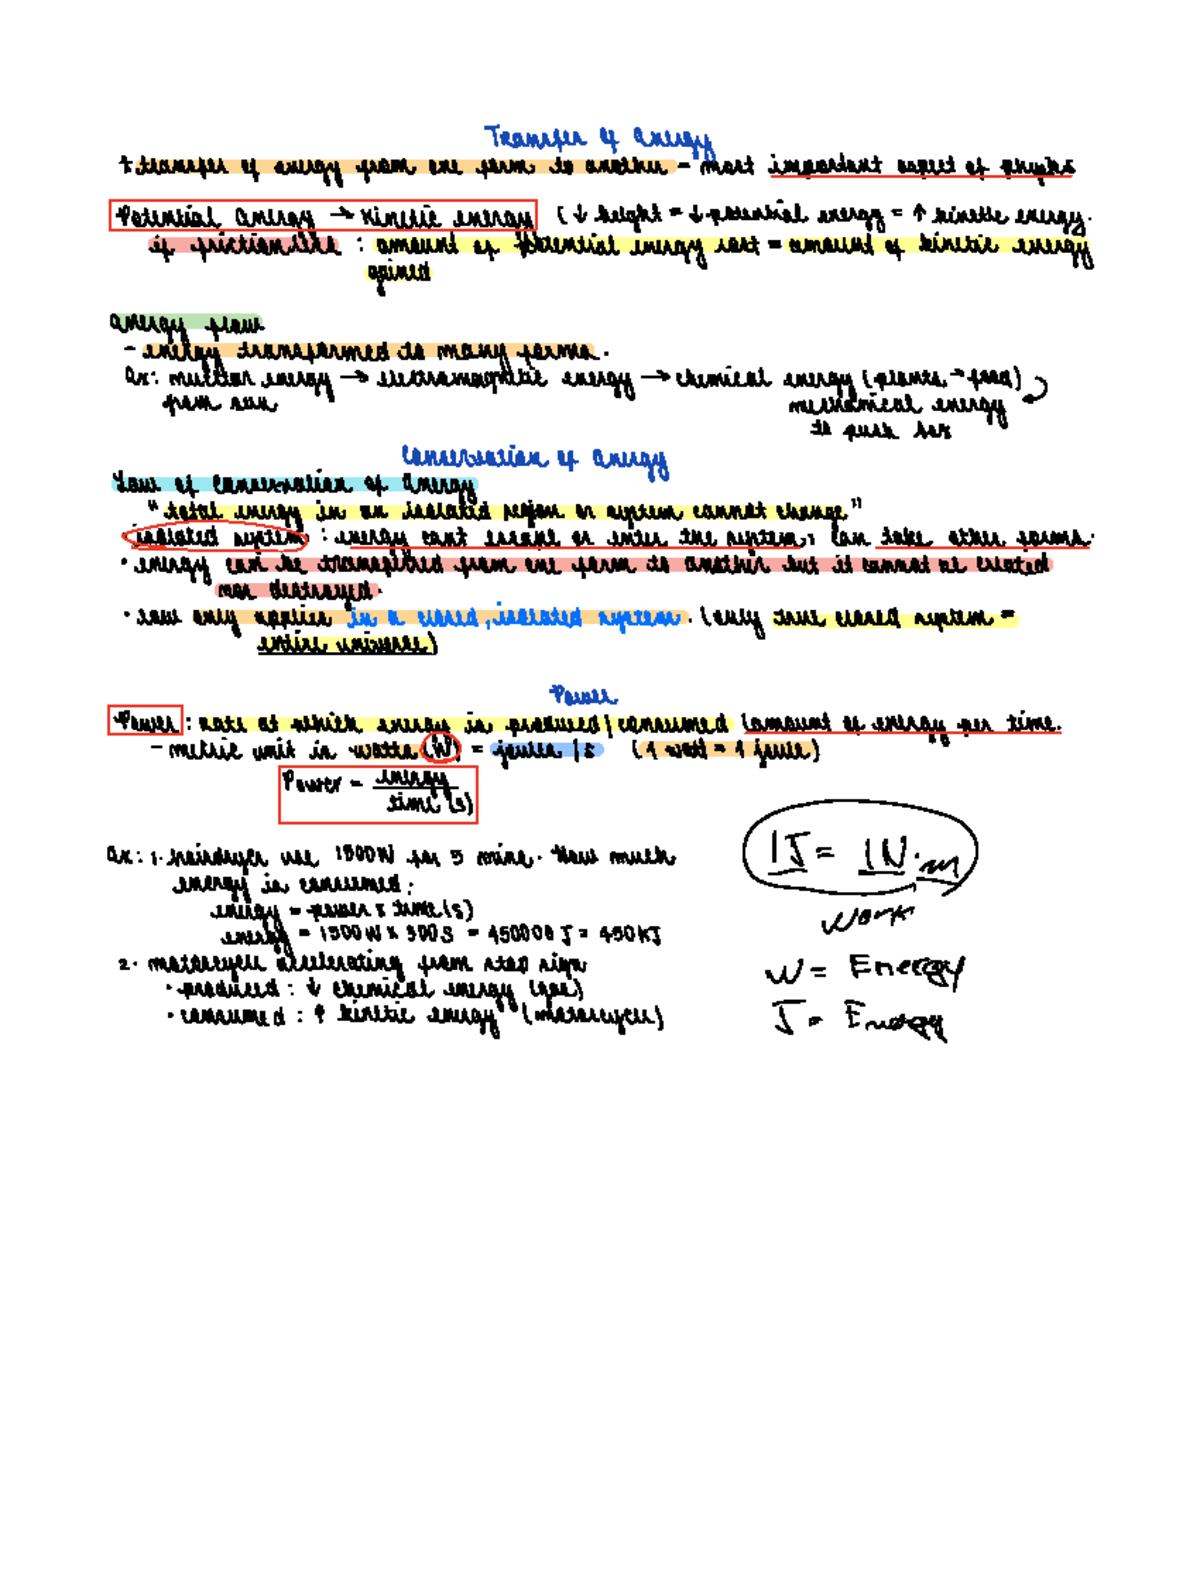 Transfer of Energy
+ transfer of energy from one form to another - most important aspect of physics
Potential Energy → Kinetic energy (↓ height = ↓ potential energy = ↑ kinetic energy.
if frictionless : amount of potential energy lost = amount of kinetic energy
gained
Energy flow
- energy transformed to many forms.
Ex: nuclear energy → electromagnetic energy → chemical energy (plants → food)
from sun
mechanical energy
to push box
Conservation of Energy
Law of Conservation of Energy
"total energy in an isolated region or system cannot change"
isolated system : energy can't escape or enter the system, can take other forms.
• energy can be transferred from one form to another but it cannot be created
nor destroyed.
• law only applies in a closed, isolated system. (only true closed system =
entire universe)
Power
Power : rate at which energy is produced/consumed (amount of energy per time.
- metric unit is watts (W) = joules / s (1 watt = 1 joule)
Power = energy
time (s)
Ex: 1. hairdryer use 1500W for 5 mins. How much
energy is consumed:
energy = power x time(s)
energy = 1500W x 300S = 450000 J = 450KJ
2. motorcycle accelerating from stop sign
• produced : ↓ chemical energy (gas)
• consumed : ↑ kinetic energy (motorcycle)
1J = 1N·m
Work
W = Energy
J = Energy